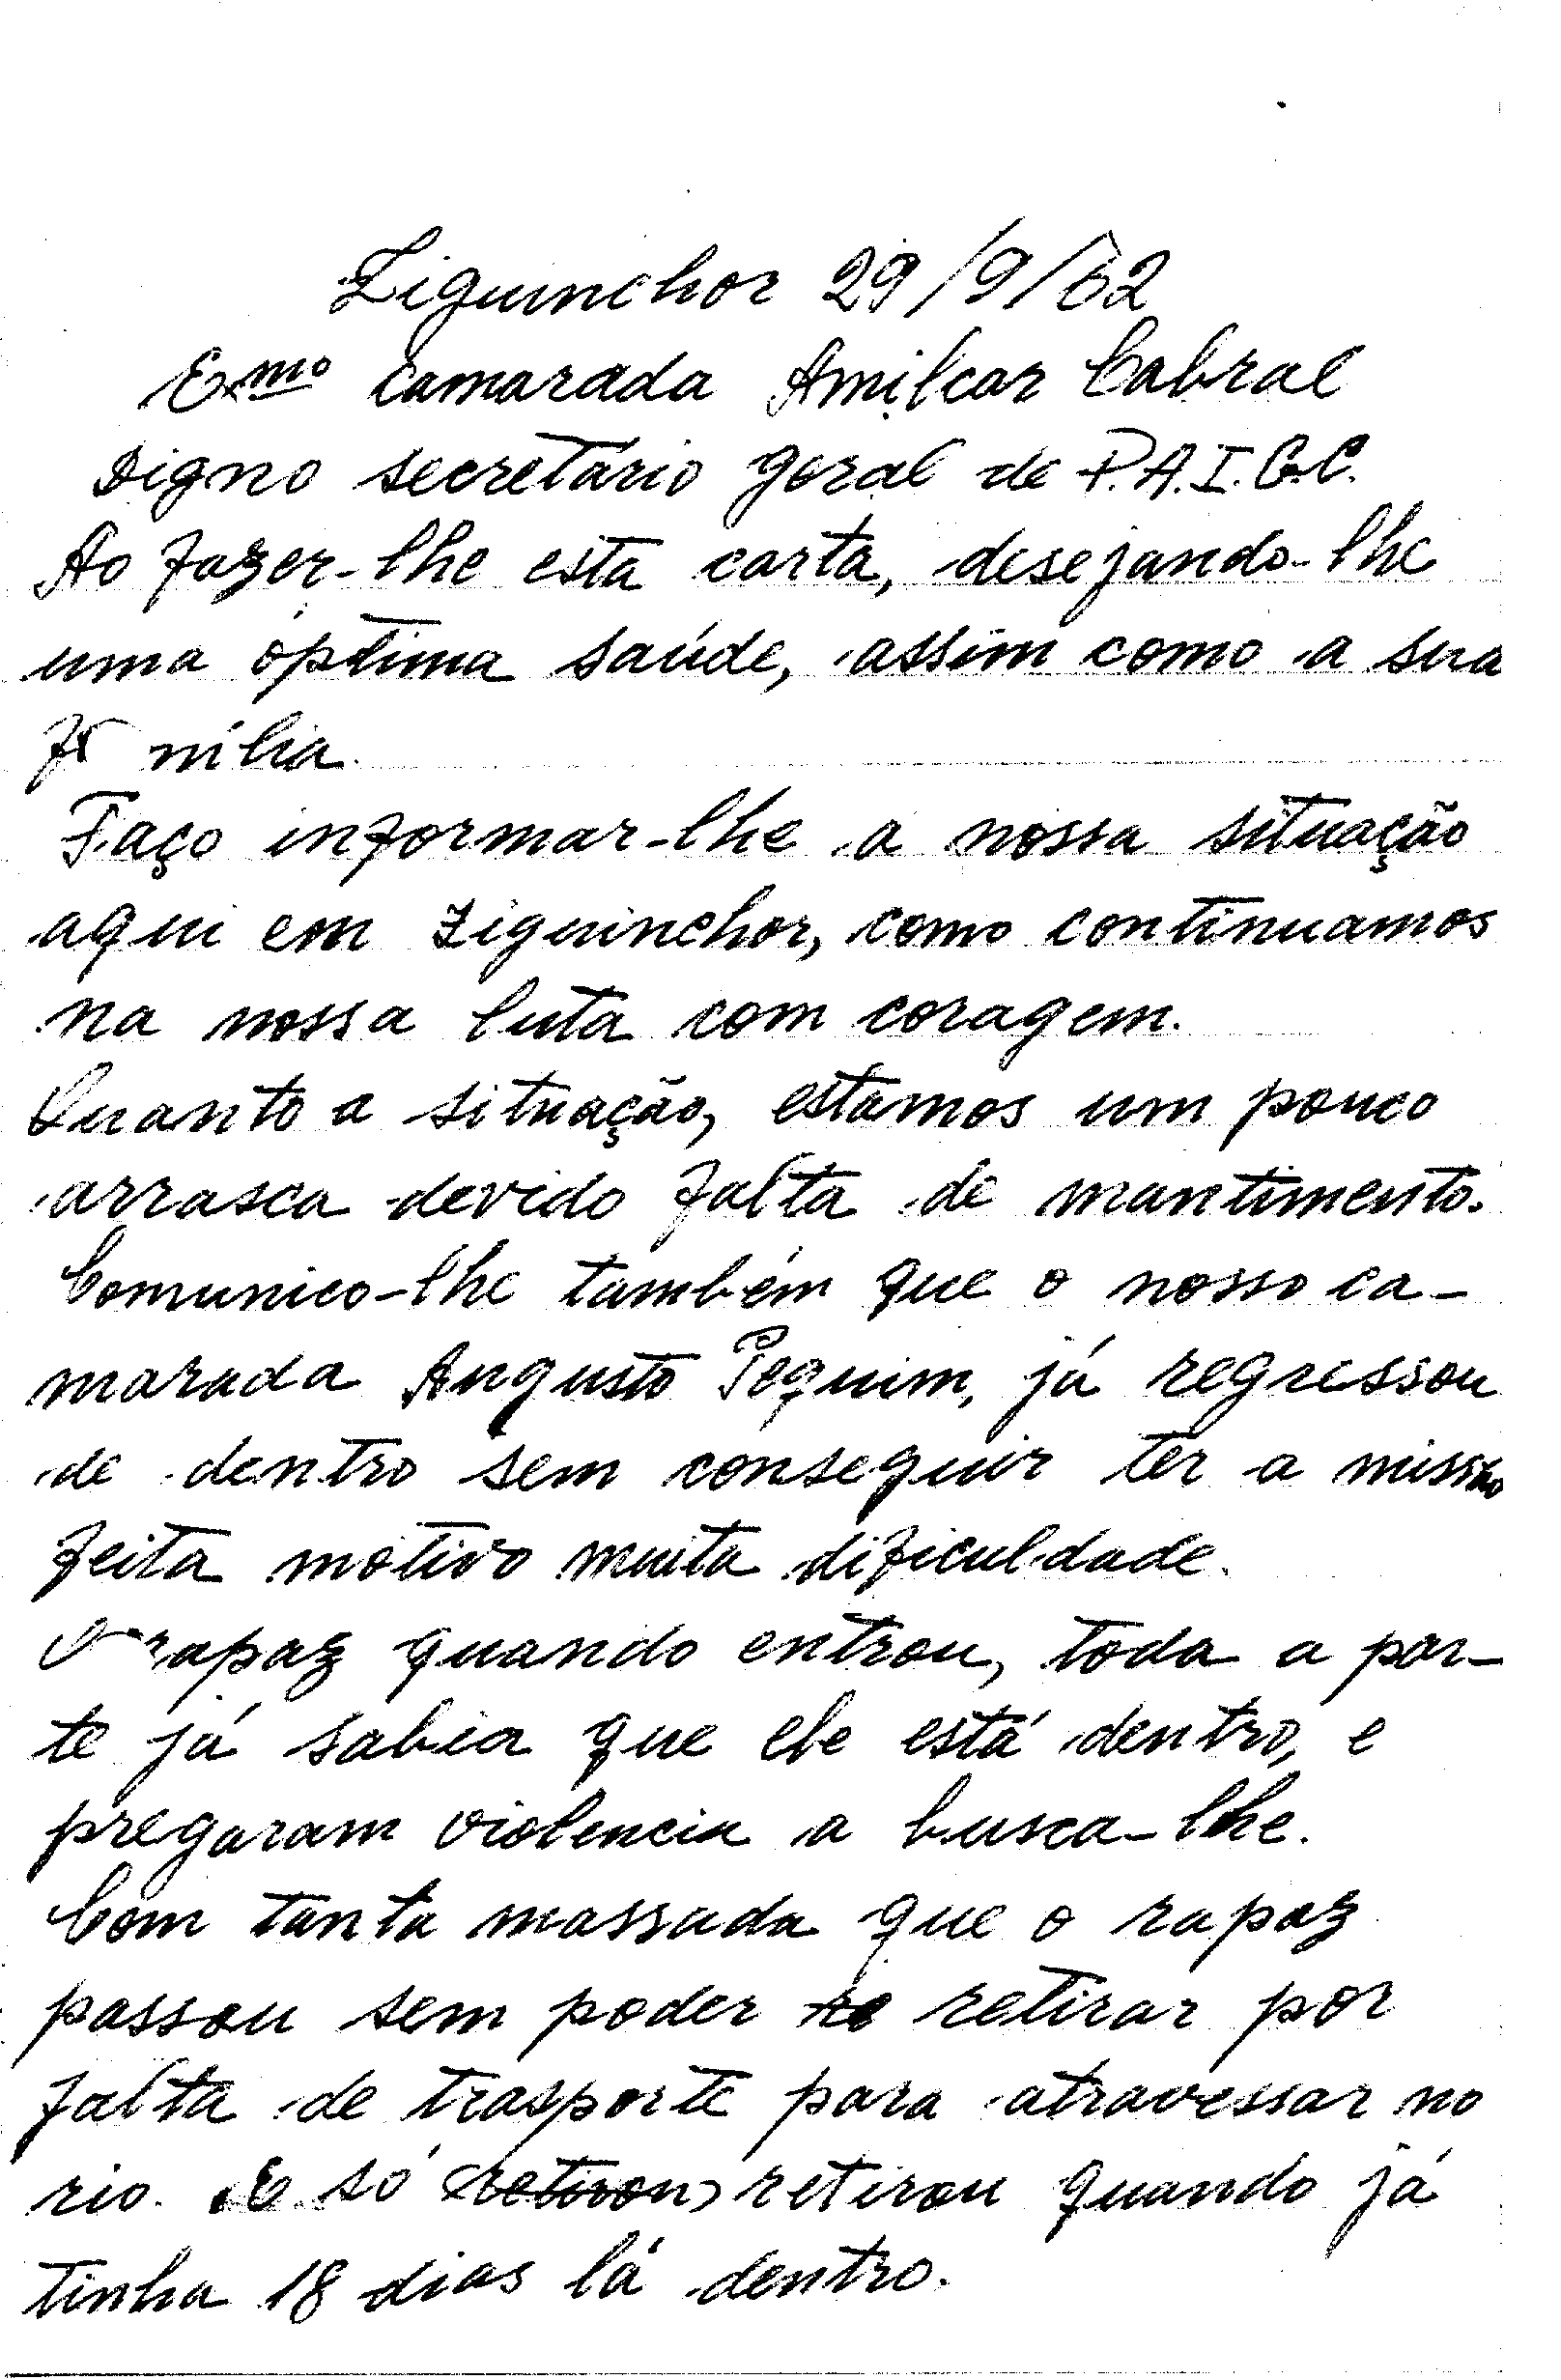 Ziguinchor 29/9/62
Exmo Camarada Amilcar Cabral
Digno secretário geral de P.A.I.G.C.
Ao fazer-lhe esta carta, desejando-lhe
uma óptima saúde, assim como a sua
Faço informar-lhe a nossa situação
aqui em Ziguinchor, como continuamos
na nossa luta com coragem.
Quanto a situação, estamos um pouco
arrasca devido falta de mantimento.
Comunico-lhe também que o nosso ca-
marada Augusto Pequim, já regressou
de dentro sem conseguir ter a missão
feita motivo muita dificuldade.
O rapaz quando entrou, toda a par-
te já sabia que ele está dentro, e
pregaram violencia a busca-lhe.
Com tanta massada que o rapaz
passou sem poder re retirar por
falta de trasporte para atravessar no
rio. E só (retirou) retirou quando já
tinha 18 dias lá dentro.